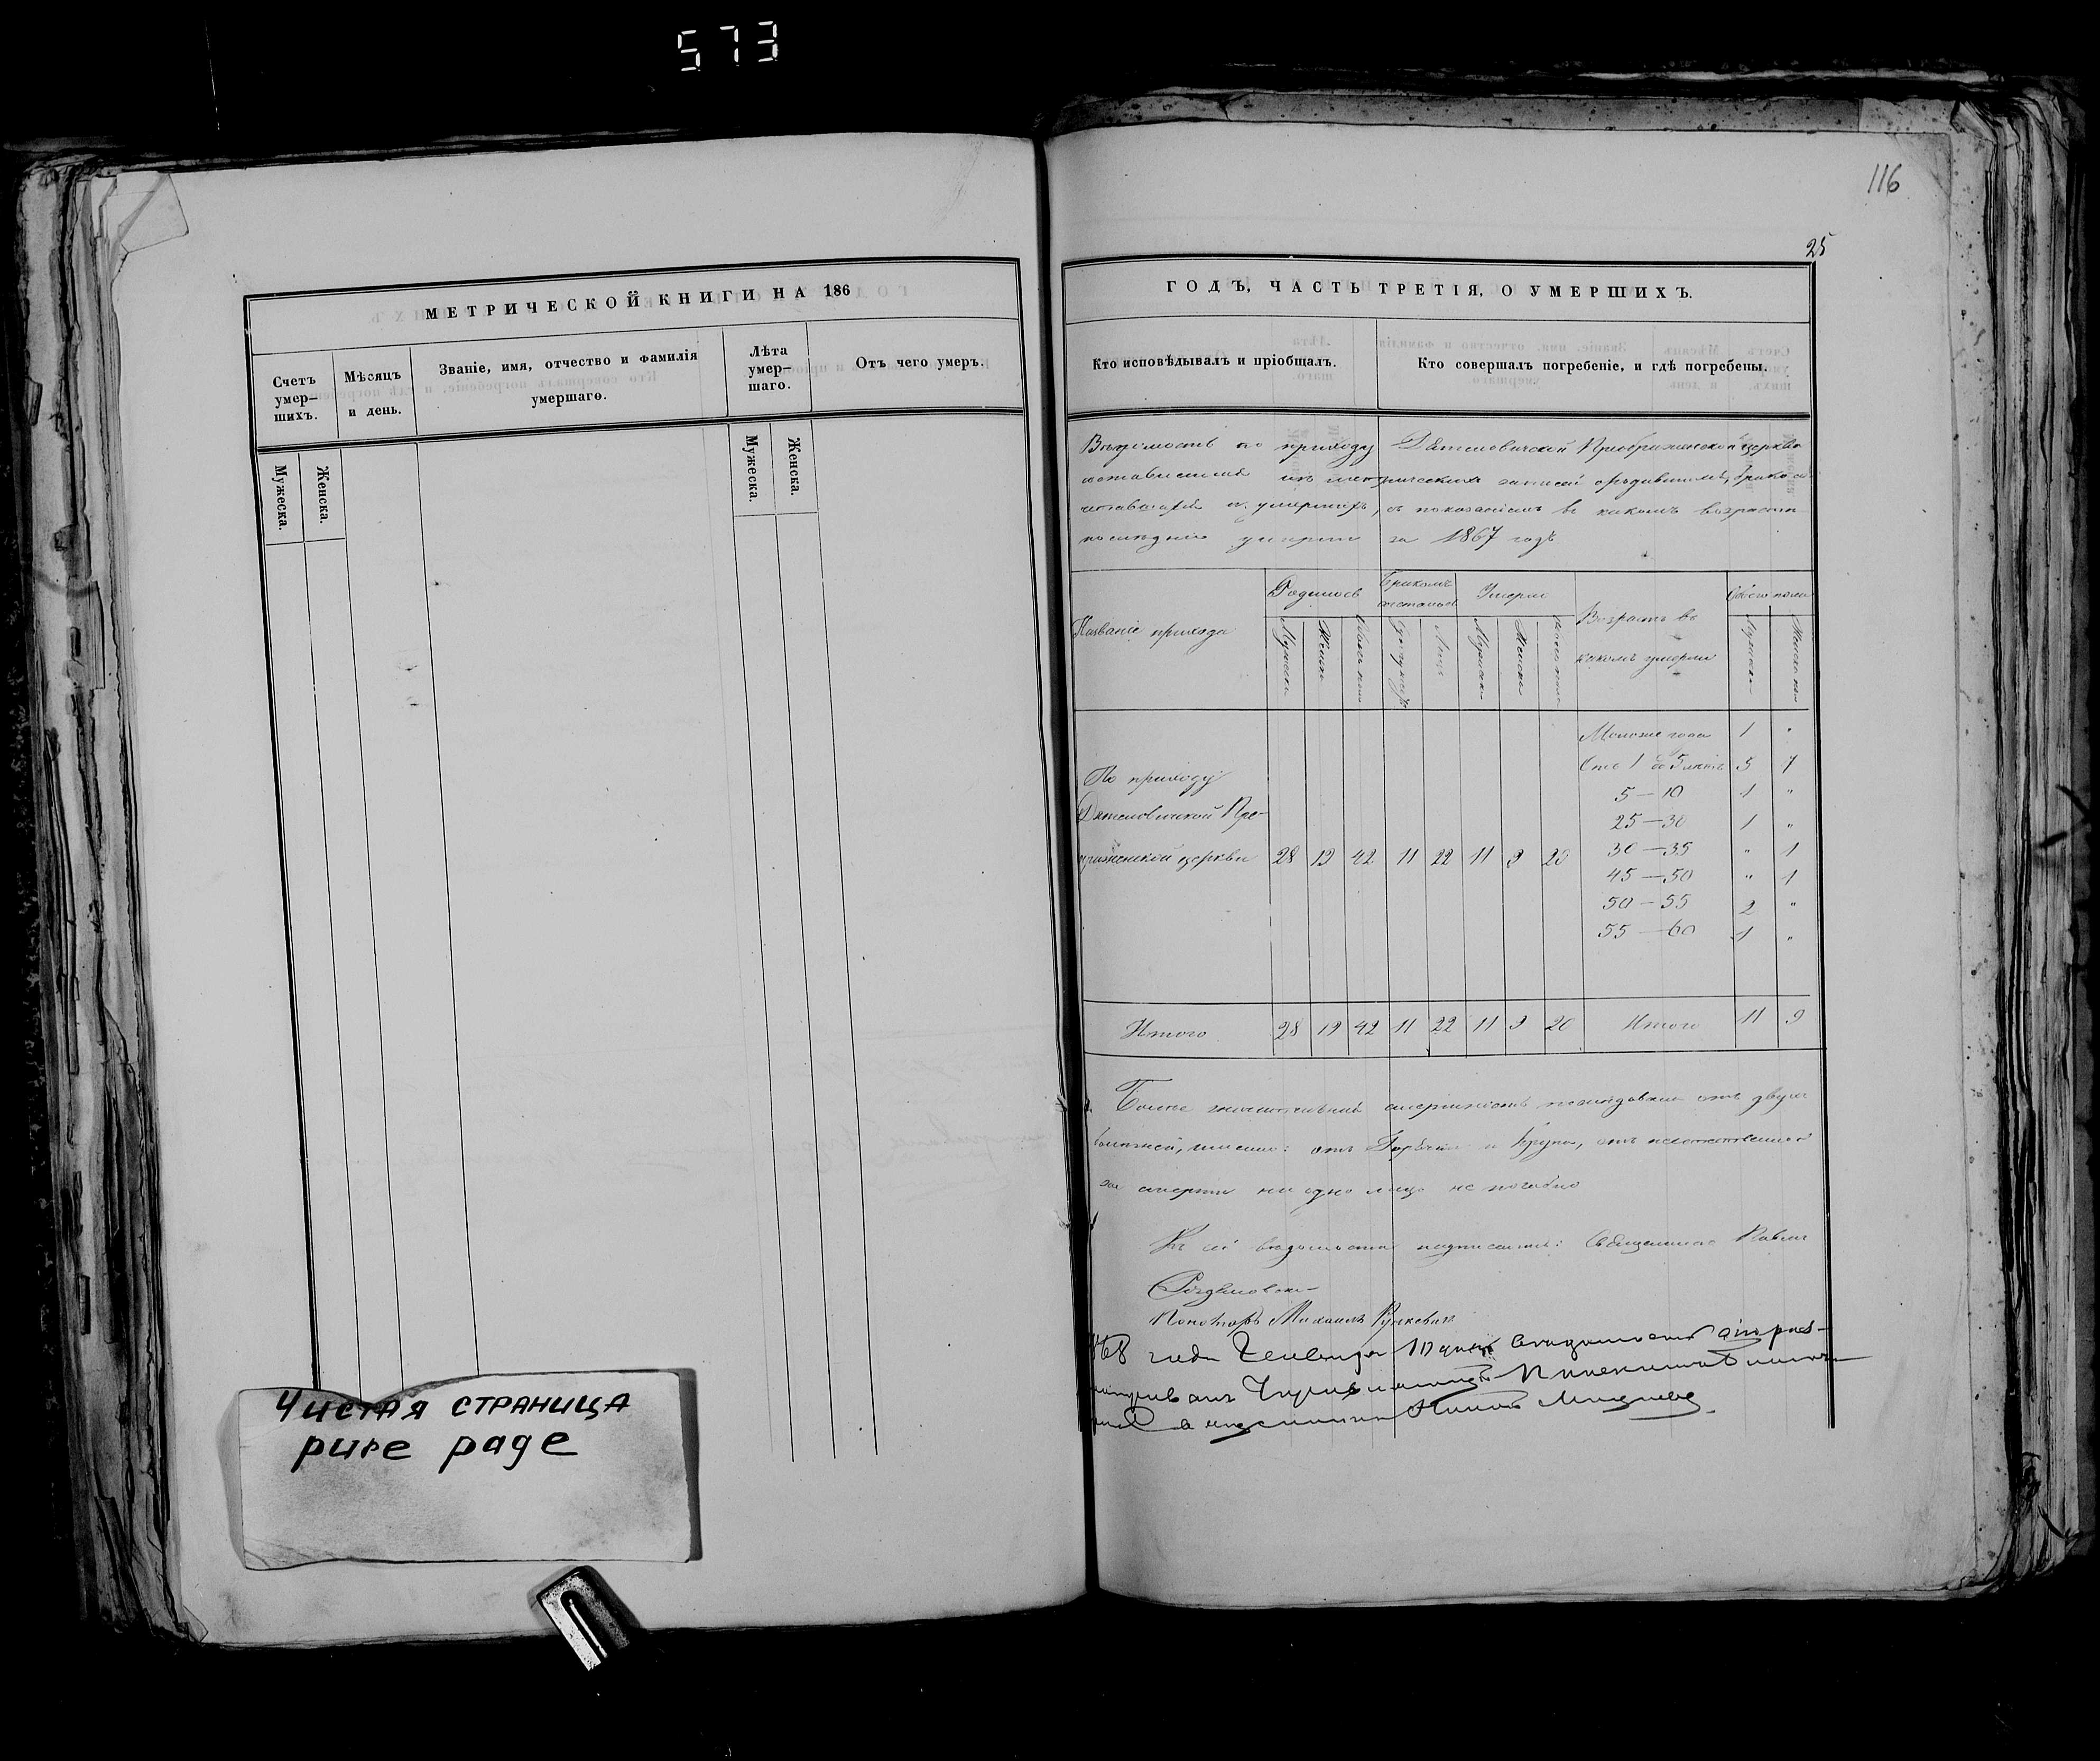 573
116
25
МЕТРИЧЕСКОЙ КНИГИ НА 186
Счетъ умер-шихъ.
Мѣсяцъ и день.
Званіе, имя, отчество и фамилія умершаго.
Лѣта умер-шаго.
Отъ чего умеръ.
Мужеска.
Женска.
Мужеска.
Женска.
Чистая страница
pure page
ГОДЪ, ЧАСТЬ ТРЕТІЯ, О УМЕРШИХЪ.
Кто исповѣдывалъ и пріобщалъ.
Кто совершалъ погребеніе, и гдѣ погребены.
Вѣдомость по приходу Дятеловичской Преображенской церкви
составленная изъ метрическихъ записей о родившихся, бракосо-
четавшихся и умершихъ, съ показаніемъ въ какомъ возрасте
последніе умерли за 1867 годъ
Названіе прихода
Родилось
Бракомъ сочеталось
Умерло
Возрастъ въ какомъ умерли
Обоего пола
Мужеска
Женска
Лицъ
Мужеска
Женска
Мужеска
Женска
Моложе года 1 "
Отъ 1 до 5 летъ 5 7
5 — 10 1 "
25 — 30 1 "
30 — 35 " 1
45 — 50 " 1
50 — 55 2 "
55 — 60 1 "
По приходу
Дятеловичской Пре-
ображенской церкви 28 19 42 11 22 11 9 20
Итого 28 19 42 11 22 11 9 20 Итого 11 9
Более значительная смертность последовала отъ двухъ
болезней, именно: отъ Горячки и Крупа, отъ неестественной
же смерти ни одно лицо не погибло
Къ сей ведомости подписались: Священникъ Павелъ
Пономарь Михаилъ Рункевичъ
1868 года Генваря 10 дня